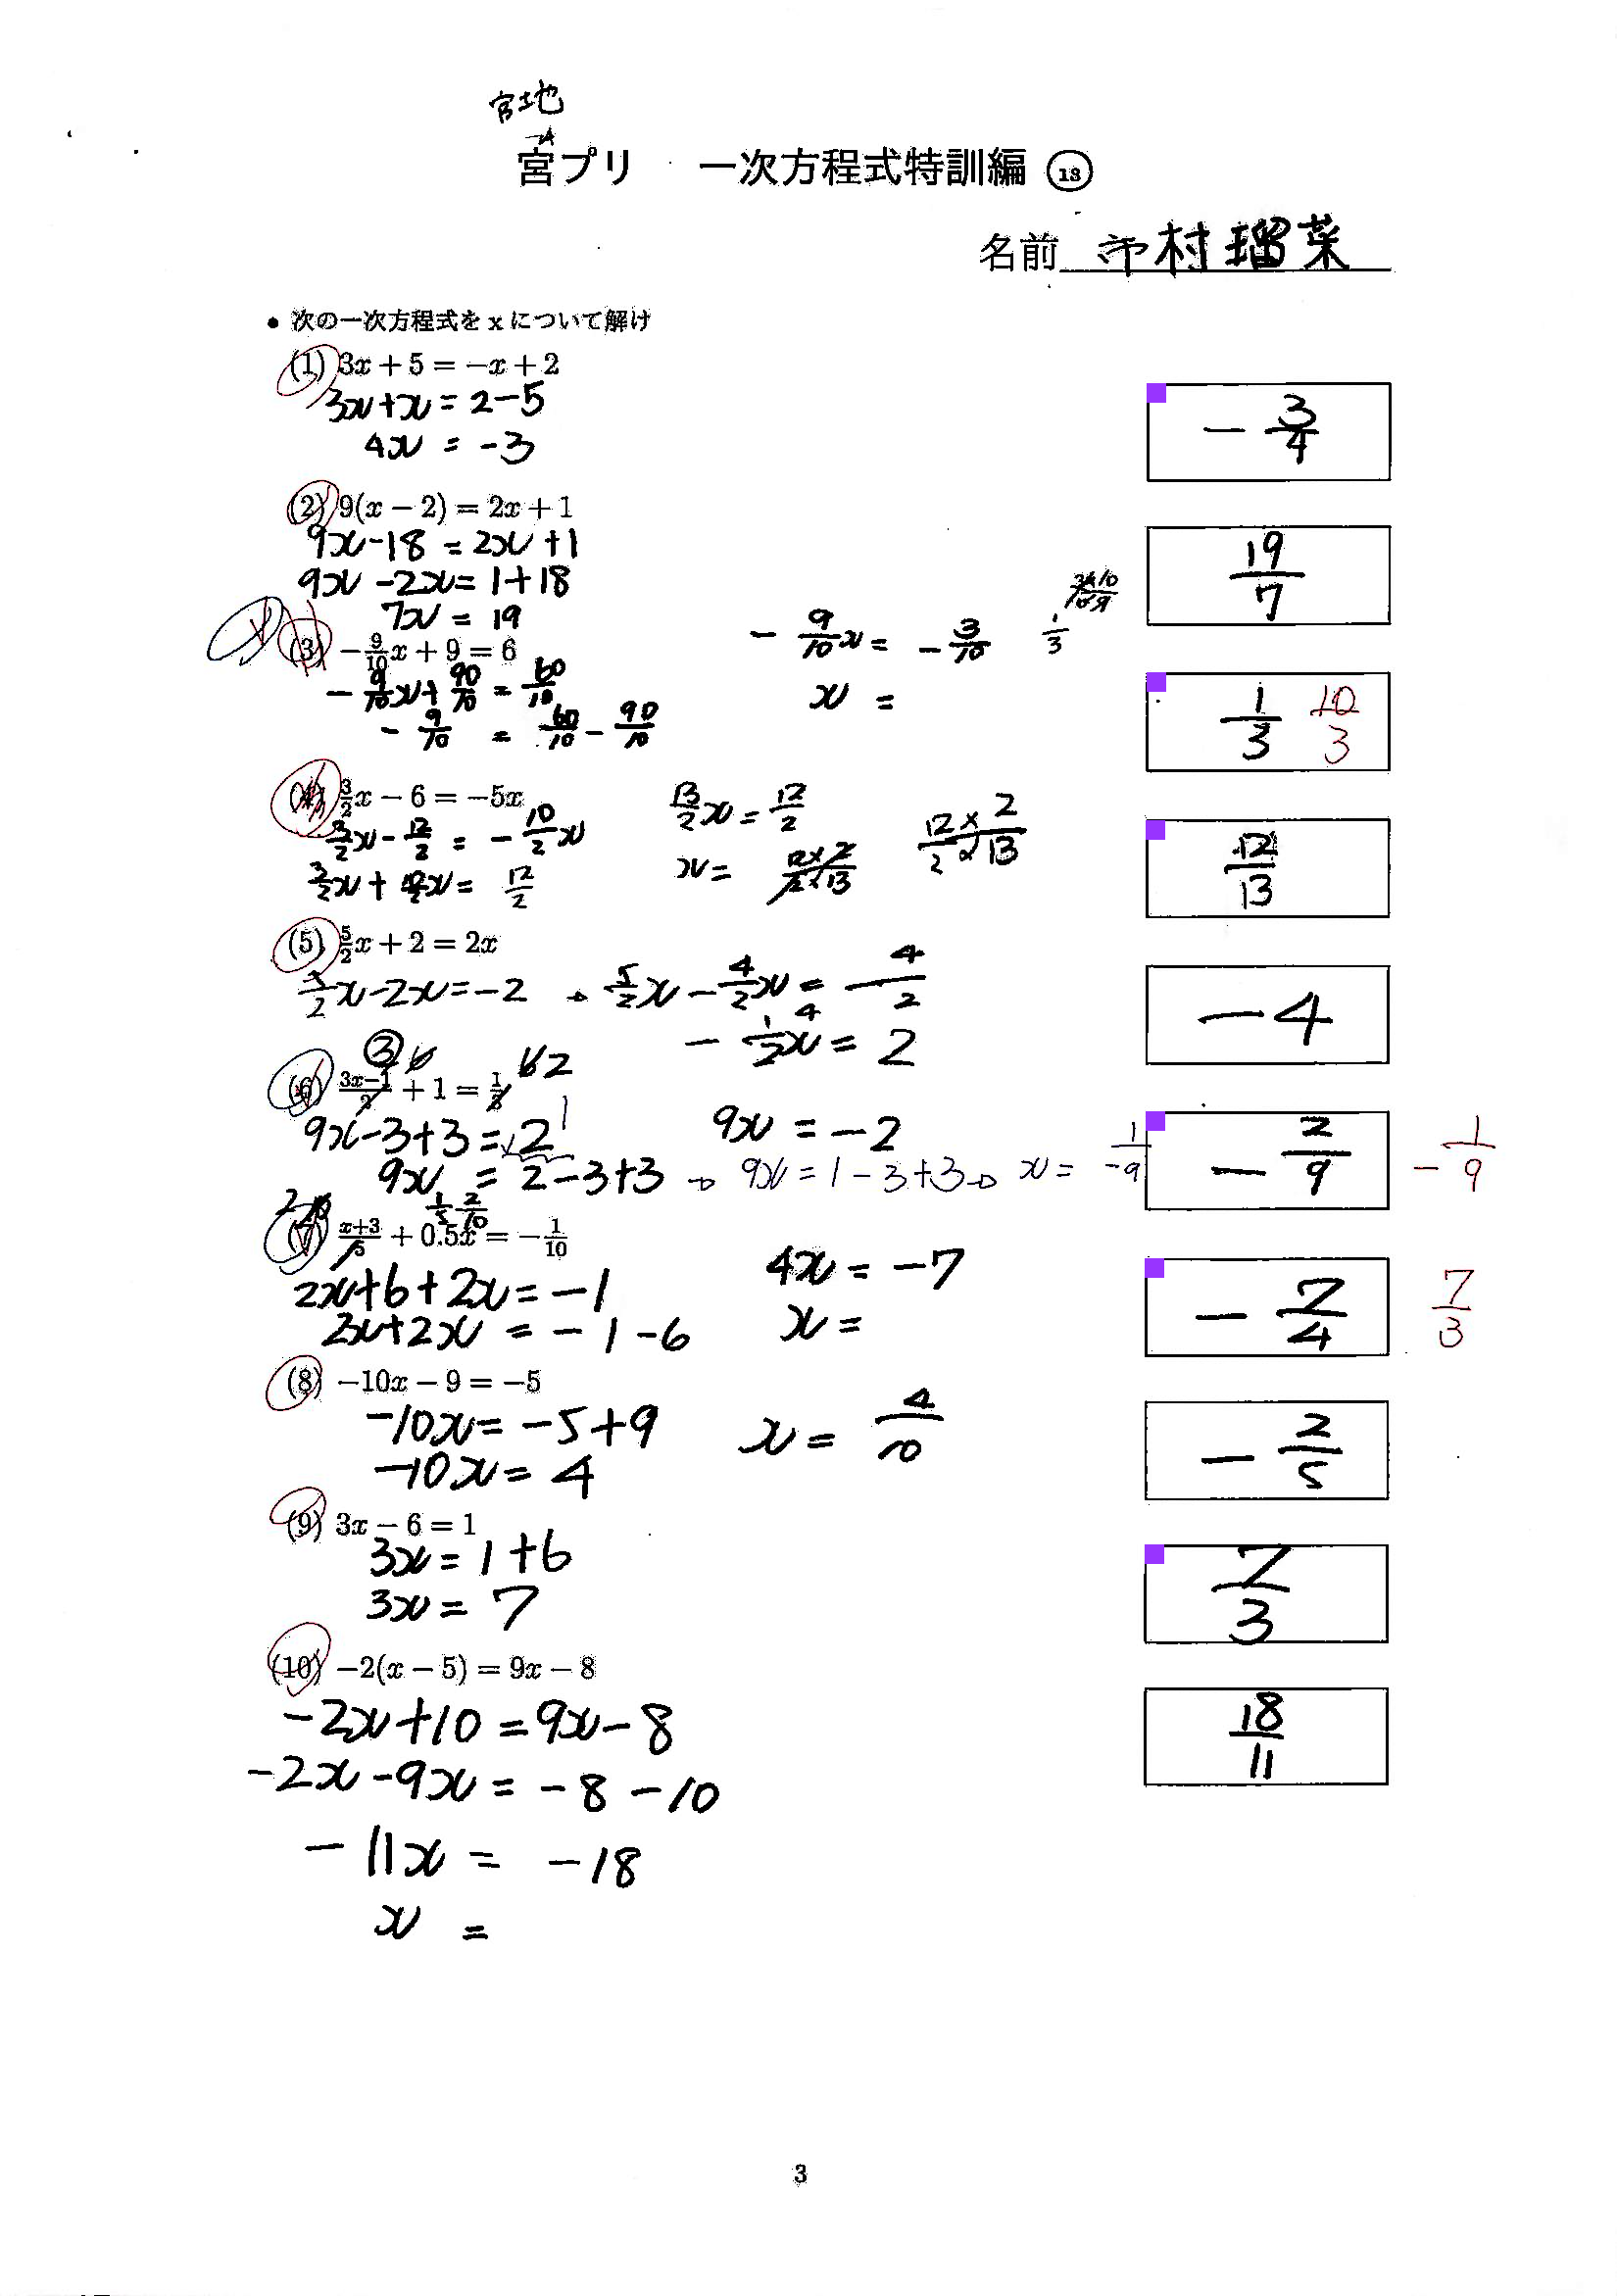 宮地
宮プリ 一次方程式特訓編 13
名前 市村瑠菜
• 次の一次方程式を x について解け
(1) 3x + 5 = −x + 2
3x+x = 2-5
4x = -3
-3/4
(2) 9(x − 2) = 2x + 1
9x-18 = 2x+1
9x-2x = 1+18
7x = 19
19/7
(3) −9/10x + 9 = 6
-9/10x + 90/10 = 60/10
-9/10 = 60/10 - 90/10
-9/10x = -3/10
x =
1/3
1/3 10/3
(4) 3/2x − 6 = −5x
3/2x - 12/2 = -10/2x
13/2x = 12/2
12×2/2×13
x = 12×2/2×13
12/13
(5) 5/2x + 2 = 2x
5/2x-2x = -2 → 5/2x - 4/2x = -4/2
-1/2x = 2
-4
(6) 3x−1/2 + 1 = 1/2
9x-3+3 = 2 1
9x = 2-3+3 → 9x = 1-3+3 → x = 1/-9
9x = -2
-2/9 -1/9
(7) x+3/5 + 0.5x = −1/10
1/5 2/10
2x+6+2x = -1
2x+2x = -1-6
4x = -7
x =
-7/4 7/3
(8) −10x − 9 = −5
-10x = -5+9
-10x = 4
x = 4/10
-2/5
(9) 3x − 6 = 1
3x = 1+6
3x = 7
7/3
(10) −2(x − 5) = 9x − 8
-2x+10 = 9x-8
-2x-9x = -8-10
-11x = -18
x =
18/11
3